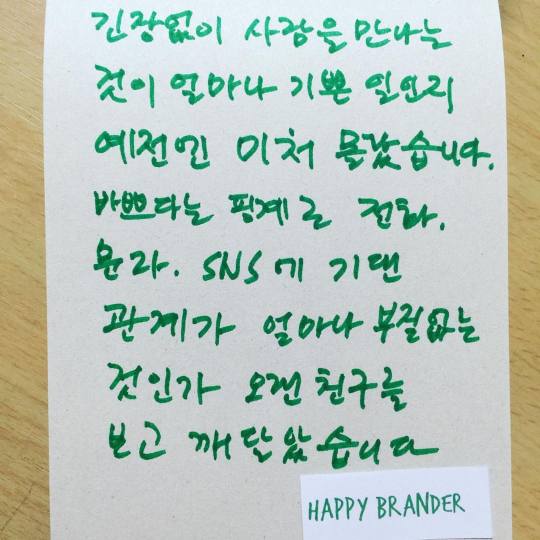 긴장없이 사람을 만나는
것이 얼마나 기쁜 일인지
예전엔 미처 몰랐습니다.
바쁘다는 핑계로 전화,
문자, SNS에 기댄
관계가 얼마나 부질없는
것인가 오랜 친구를
보고 깨달았습니다
HAPPY BRANDER